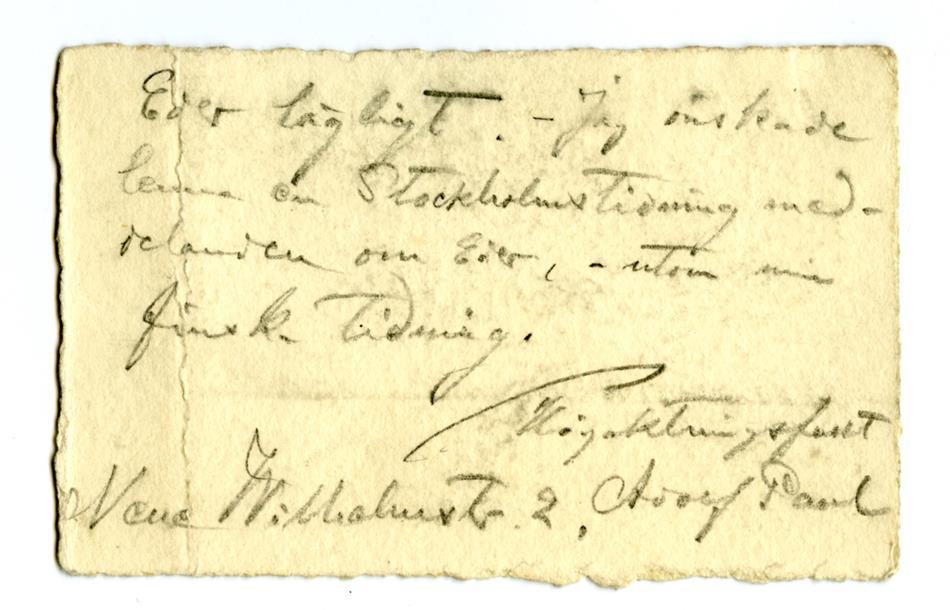 Eder lägligt. - Jag önskade
lemna en Stockholmstidning med-
delanden om Eder, - utom min
finska tidning.
Högaktningsfullt
Neue Wilhelmstr. 2, Adolf Paul